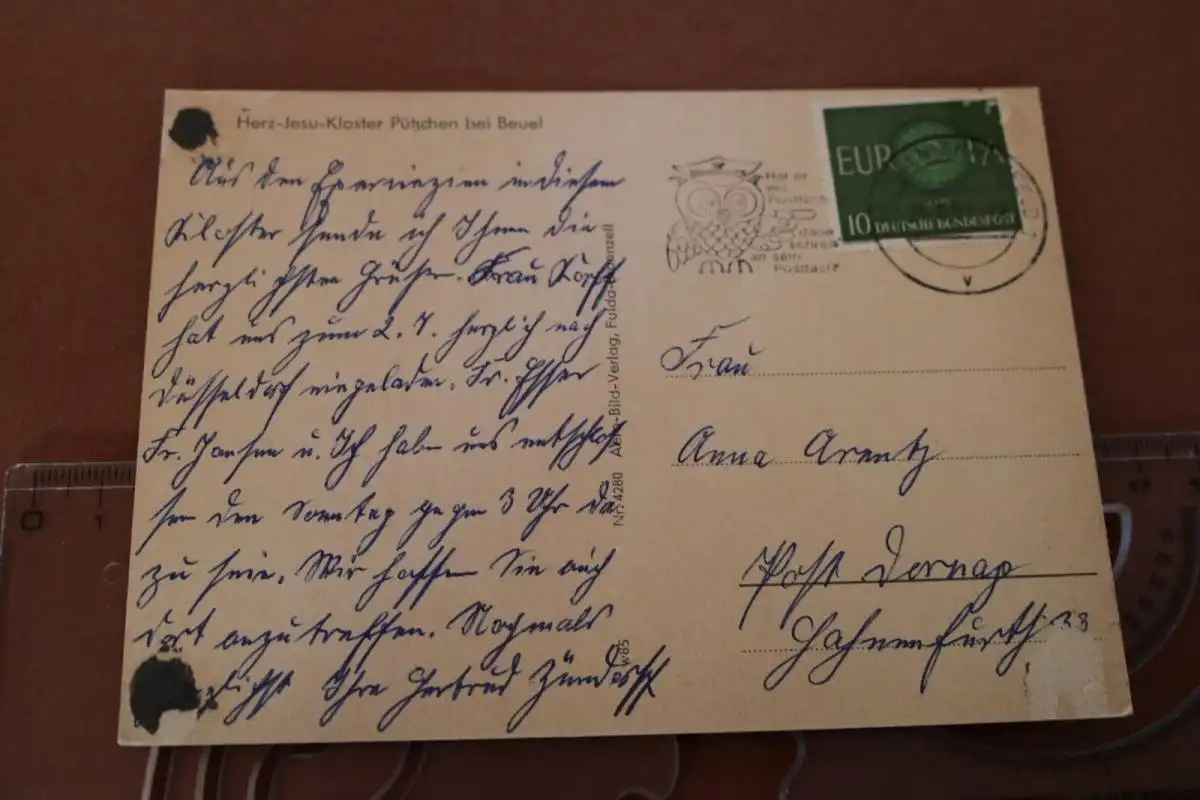 Herz-Jesu-Kloster Pützchen bei Beuel
Aus den Exerzitien in diesem
Kloster sende ich Ihnen die
herzlichsten Grüße. Frau
hat uns zum 2. 7. herzlich nach
Düsseldorf eingeladen. Fr. Esser
Fr. Jansen u. Ich haben uns entschlos
sen den Sonntag gegen 3 Uhr da
zu sein. Wir hoffen Sie auch
dort anzutreffen. Nochmals
Ihre Gertrud
Nr. 4280 Aero-Bild-Verlag, Fulda
w85
Hat er
ein
Postfach
dann
schreib
an sein
Postfach!
EUROPA
10 DEUTSCHE BUNDESPOST
Frau
Anna Arentz
Post Dornap
Hahnenfurth 33
0 1